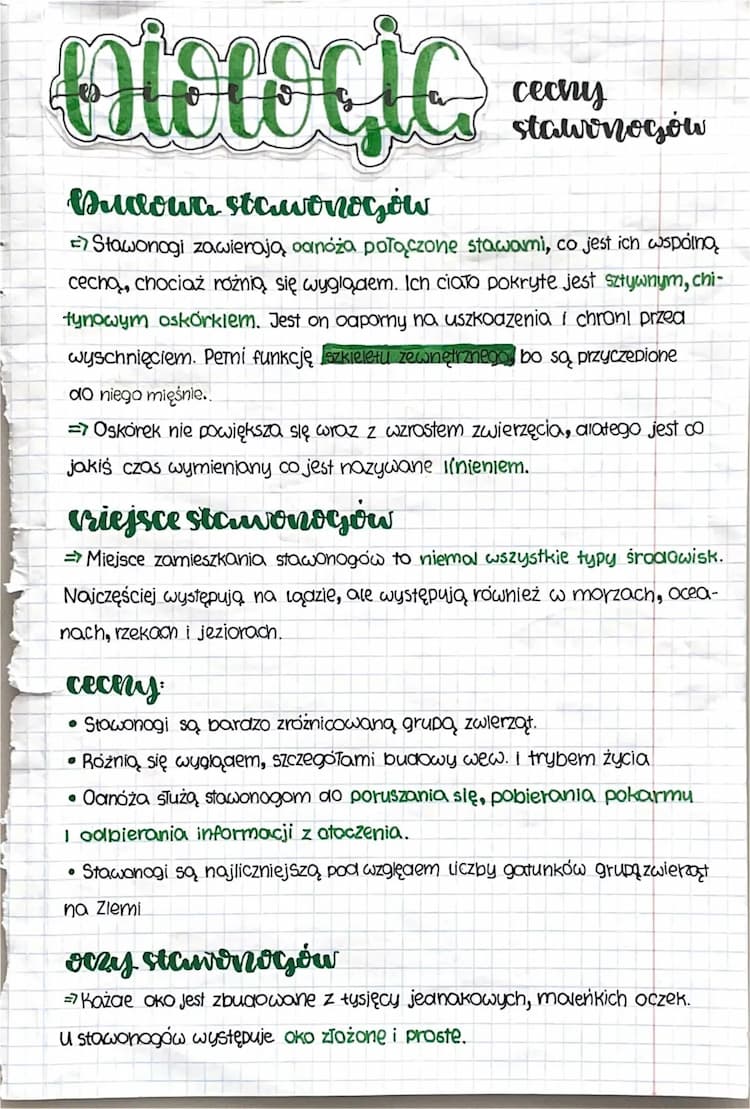 Biologia
biologia
cechy
stawonogów
Budowa stawonogów
⇒ Stawonogi zawierają odnóża połączone stawami, co jest ich wspólną
cechą, chociaż różnią się wyglądem. Ich ciało pokryte jest sztywnym, chi-
tynowym oskórkiem. Jest on odporny na uszkodzenia i chroni przed
wyschnięciem. Pełni funkcję szkieletu zewnętrznego, bo są przyczepione
do niego mięśnie.
⇒ Oskórek nie powiększa się wraz z wzrostem zwierzęcia, dlatego jest co
jakiś czas wymieniany co jest nazywane linieniem.
Miejsce stawonogów
⇒ Miejsce zamieszkania stawonogów to niemal wszystkie typy środowisk.
Najczęściej występują na lądzie, ale występują również w morzach, ocea-
nach, rzekach i jeziorach.
cechy:
• Stawonogi są bardzo zróżnicowaną grupą zwierząt.
• Różnią się wyglądem, szczegółami budowy wew. i trybem życia
• Odnóża służą stawonogom do poruszania się, pobierania pokarmu
i odbierania informacji z otoczenia.
• Stawonogi są najliczniejszą pod względem liczby gatunków grupą zwierząt
na Ziemi
oczy stawonogów
⇒ Każde oko jest zbudowane z tysięcy jednakowych, maleńkich oczek.
U stawonogów występuje oko złożone i proste.